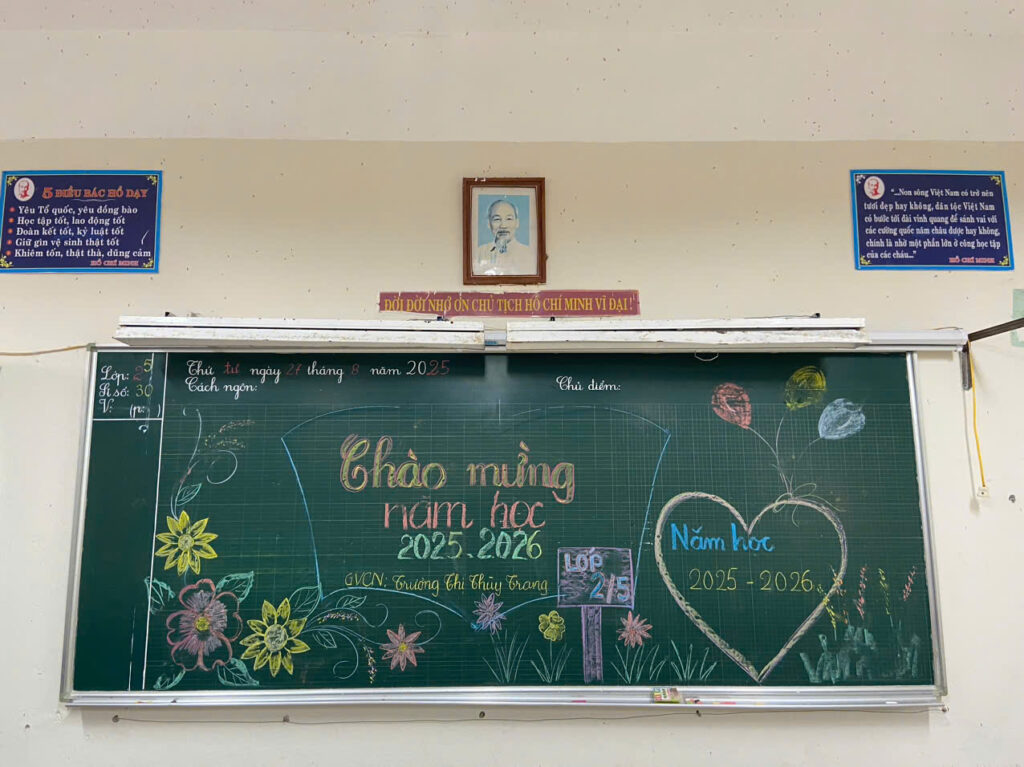 5 ĐIỀU BÁC HỒ DẠY
Yêu Tổ quốc, yêu đồng bào
Học tập tốt, lao động tốt
Đoàn kết tốt, kỷ luật tốt
Giữ gìn vệ sinh thật tốt
Khiêm tốn, thật thà, dũng cảm
HỒ CHÍ MINH
"...Non sông Việt Nam có trở nên
tươi đẹp hay không, dân tộc Việt Nam
có bước tới đài vinh quang để sánh vai với
các cường quốc năm châu được hay không,
chính là nhờ một phần lớn ở công học tập
của các cháu..."
HỒ CHÍ MINH
ĐỜI ĐỜI NHỚ ƠN CHỦ TỊCH HỒ CHÍ MINH VĨ ĐẠI !
Lớp: 2 5
Sĩ số: 30
V: (p: )
Thứ tư ngày 27 tháng 8 năm 2025
Cách ngôn:
Chủ điểm:
Chào mừng
năm học
2025.2026
GVCN: Trương Thị Thùy Trang
LỚP
2/5
Năm học
2025 - 2026